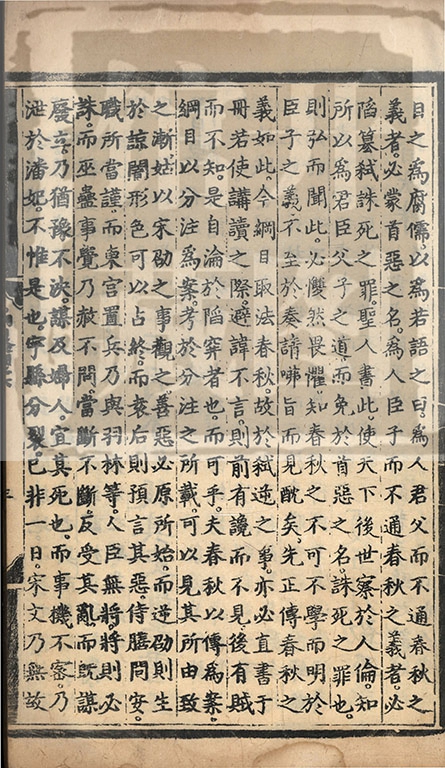 目之爲腐儒。以爲若語之曰。爲人君父而不通春秋之
義者。必蒙首惡之名。爲人臣子而不通春秋之義者。必
陷篡弑誅死之罪。聖人書此。使天下後世察於人倫。知
所以爲君臣父子之道。而免於首惡之名誅死之罪也。
則弘而聞此。必懼然畏懼。知春秋之不可不學。而明於
臣子之義。不至於奏請咈旨而見醜矣。先正傳春秋之
義如此。今綱目取法春秋。故於弑逆之事。亦必直書于
冊。若使講讀之際。避諱不言。則前有讒而不見。後有賊
而不知。是自淪於陷穽者也。而可乎。夫春秋以傳爲案。
綱目以分注爲案。考於分注之所載。可以見其所由致
之漸。姑以宋劭之事觀之。善惡必原所始。而逆劭則生
於諒闇。形色可以占終。而袁后則預言其惡。侍膳問安。
職所當謹。而東宮置兵。乃與羽林等。人臣無將。將則必
誅。而巫蠱事覺。乃赦不問。當斷不斷。反受其亂。而旣謀
廢立。乃猶豫不決。謀及婦人。宜其死也。而事機不密。乃
泄於潘妃。不惟是也。宇縣分裂。已非一日。宋文乃無故